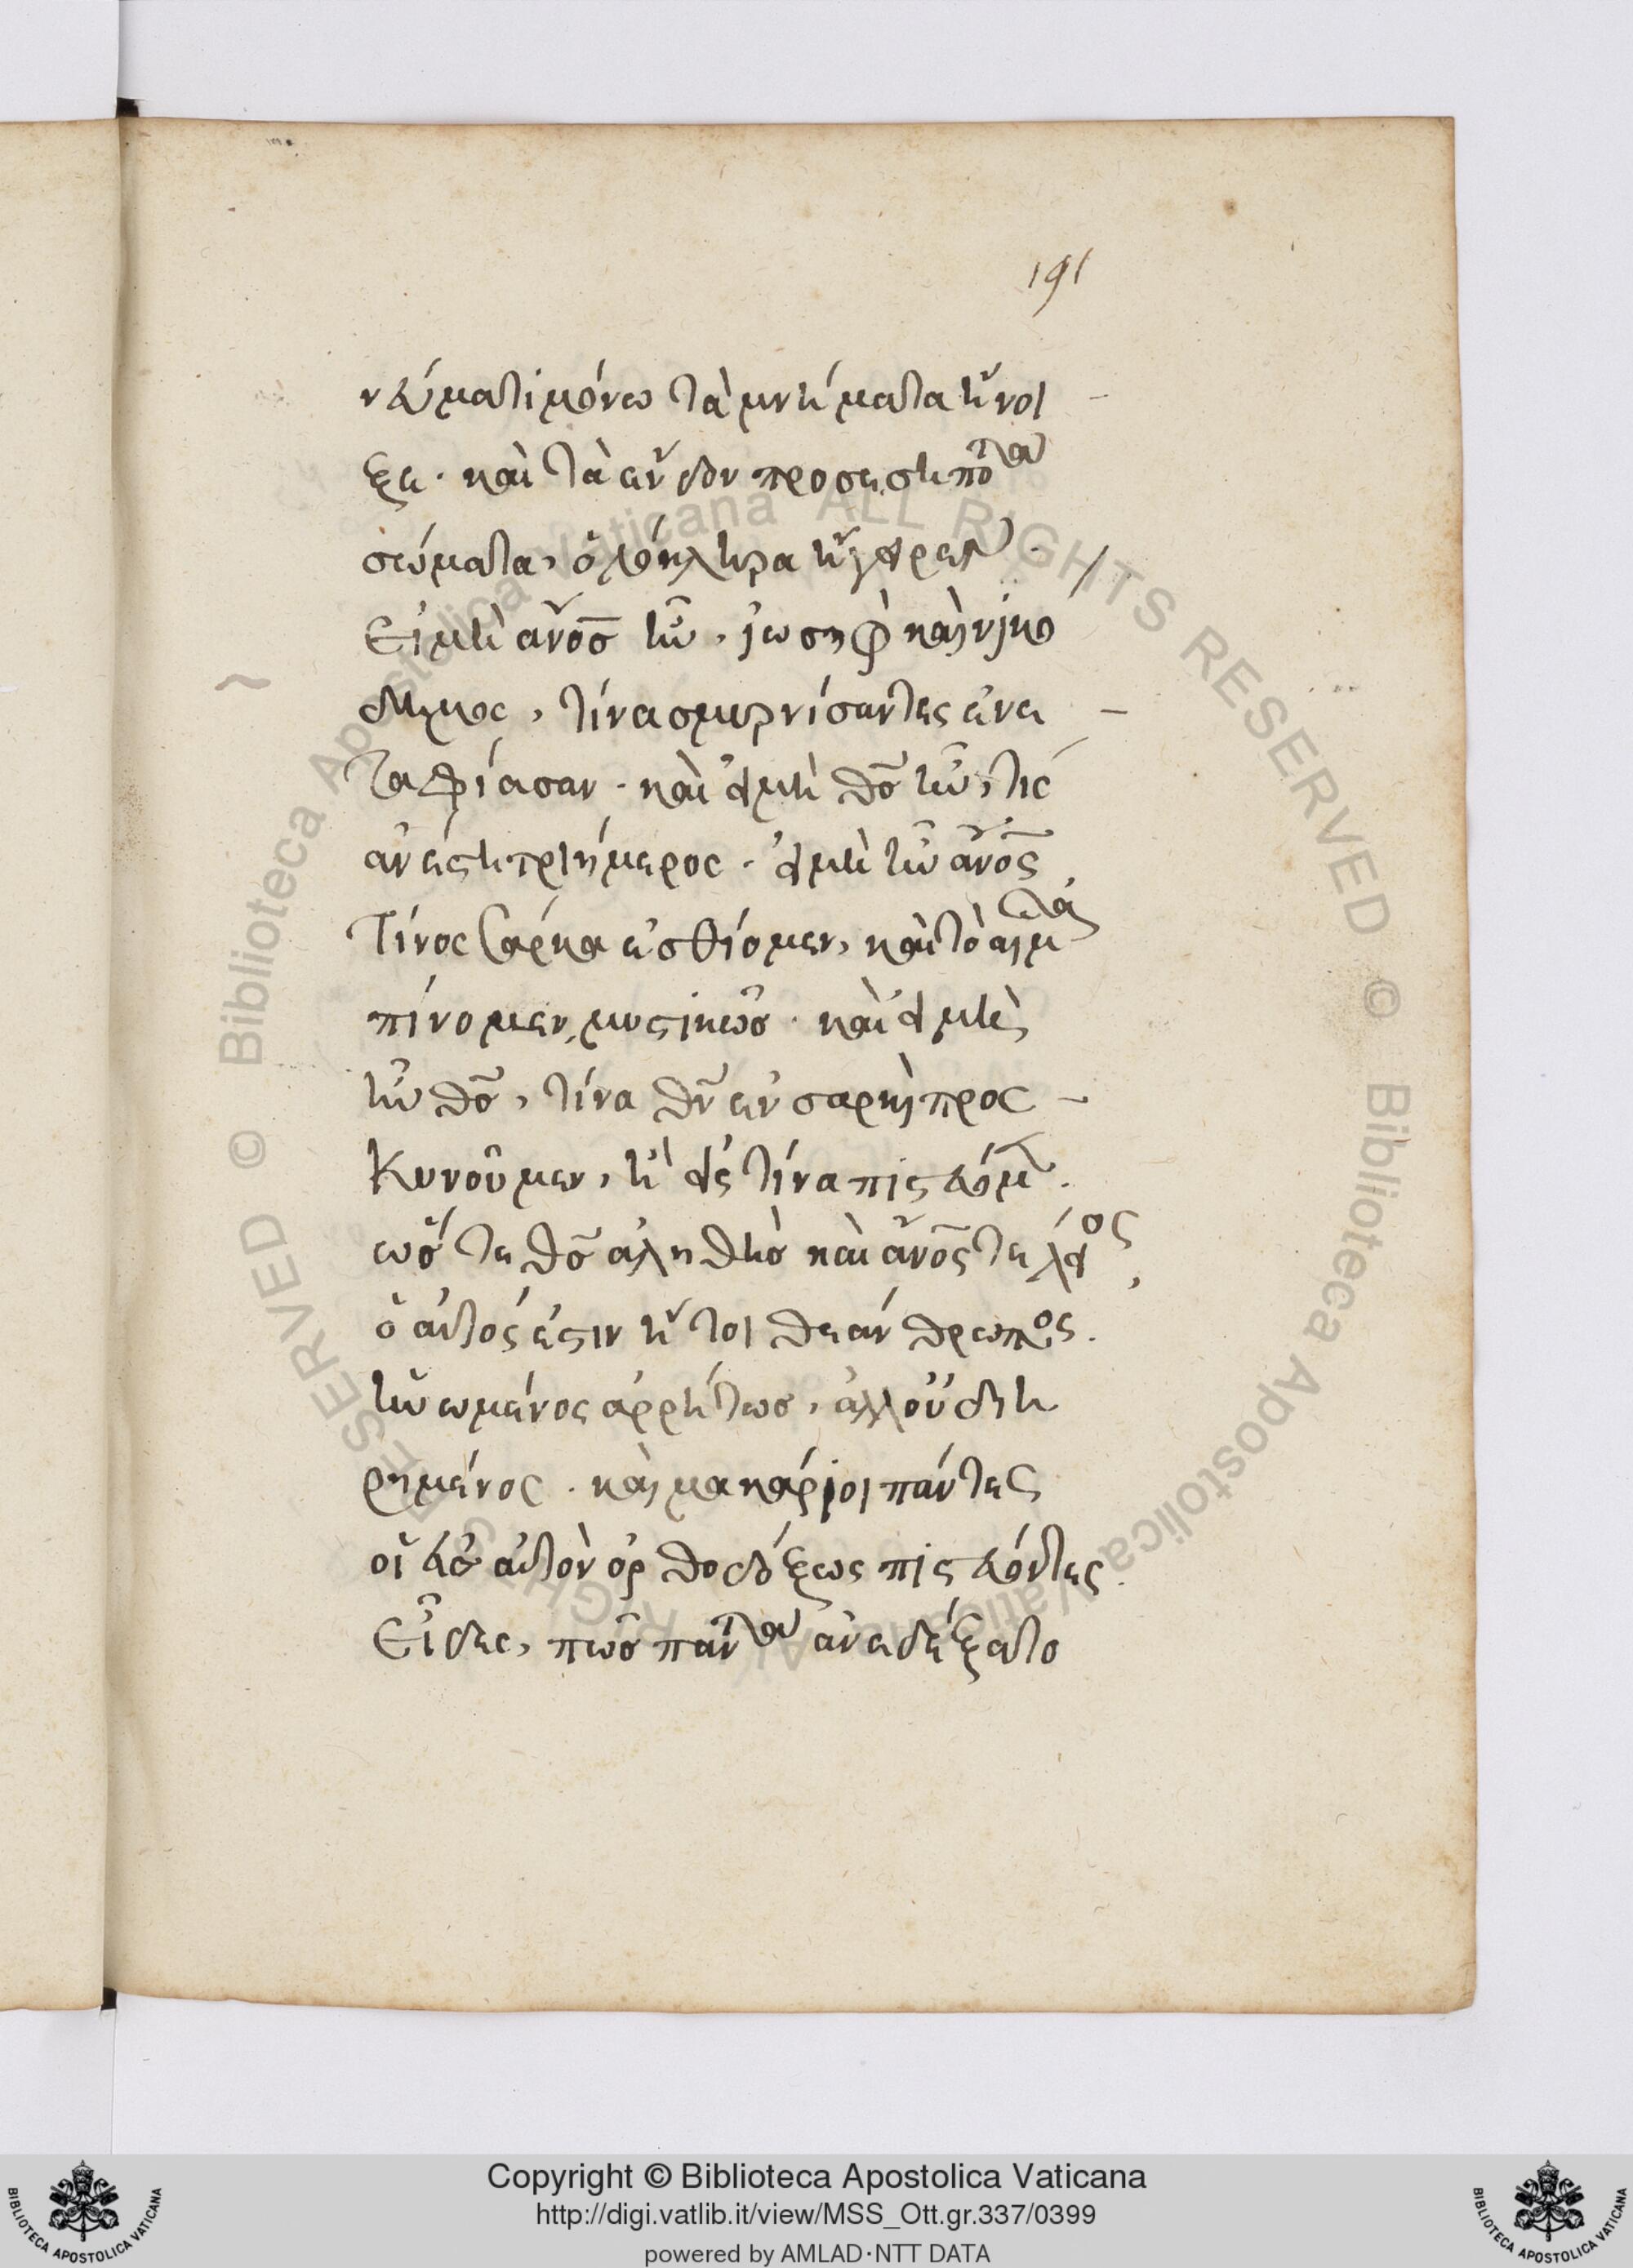 191
νεύματι μόνω τὰ μνήματα ἤνοι
ξε. καὶ τὰ ἔνδον προσεσηπότα
σώματα, ὁλόκληρα ἤγειρεν.
Εἰ μὴ ἄνος ἦν, ἰωσηφ καὶ νικο
δημος, τίνα σμυρνίσαντες ἐνε
ταφίασαν. καὶ εἰ μὴ θς ἦν, τίς
ἀνέστη τριήμερος. εἰ μὴ ἦν ἄνος
τίνος σάρκα ἐσθίομεν, καὶ τὸ αἷμα
πίνομεν μυστικῶς. καὶ εἰ μὴ
ἦν θς, τίνα θν ἐν σαρκὶ προσ
κυνοῦμεν, ἢ εἰς τίνα πιστεύομεν.
ὥστε θς ἀληθὴς καὶ ἄνος τέλειος,
ὁ αὐτός ἐστιν ἤτοι θεάνθρωπος.
ἡνωμένος ἀρρήτως, ἀλλ' οὐ διῃ
ρημένος. καὶ μακάριοι πάντες
οἱ εἰς αὐτὸν ὀρθοδόξως πιστεύοντες.
Εἶδες, πῶς πάντα ἀνεδέξατο
Copyright © Biblioteca Apostolica Vaticana
http://digi.vatlib.it/view/MSS_Ott.gr.337/0399
powered by AMLAD·NTT DATA
© Biblioteca Apostolica Vaticana ALL RIGHTS RESERVED
© Biblioteca Apostolica Vaticana ALL RIGHTS RESERVED
BIBLIOTECA APOSTOLICA VATICANA
BIBLIOTECA APOSTOLICA VATICANA